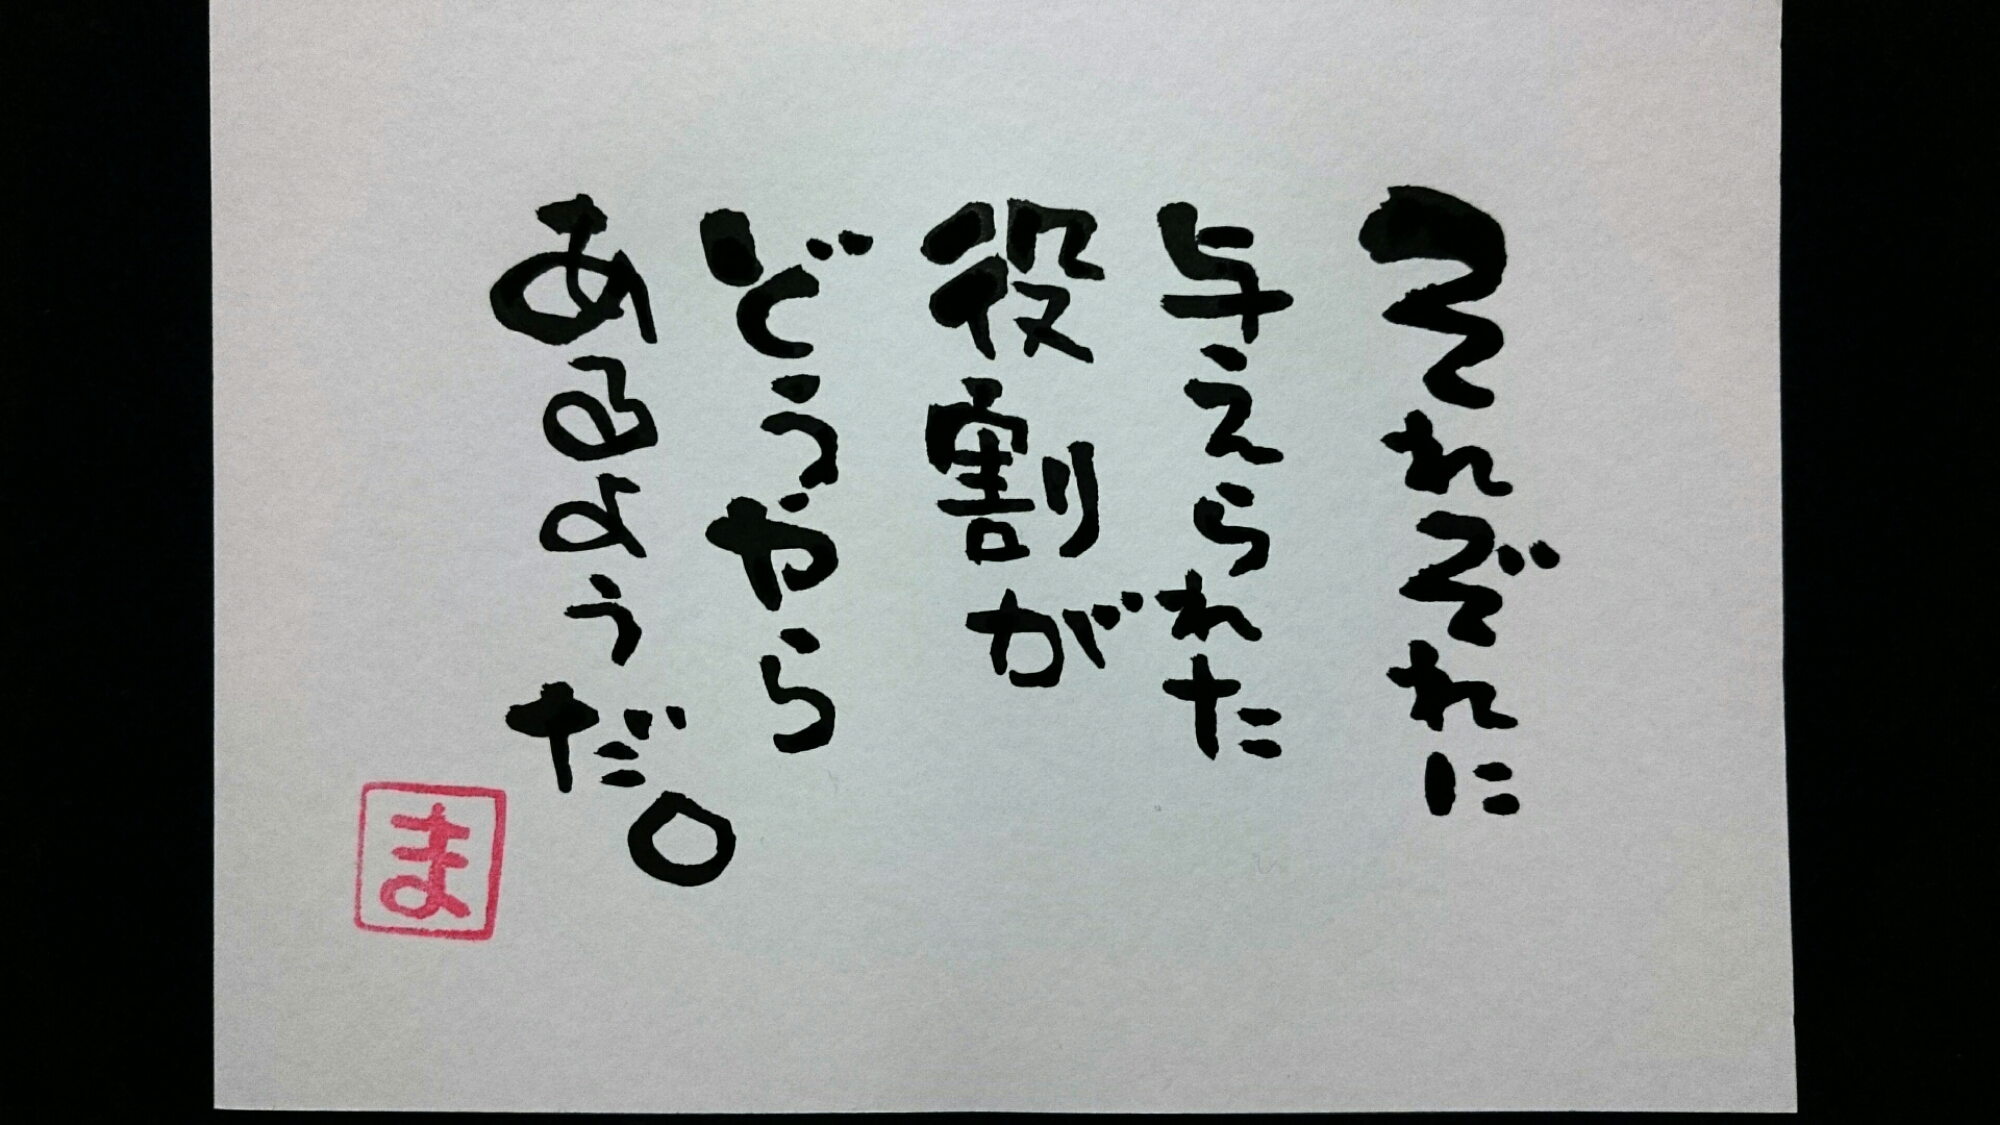 それぞれに
与えられた
役割が
どうやら
あるようだ。
ま